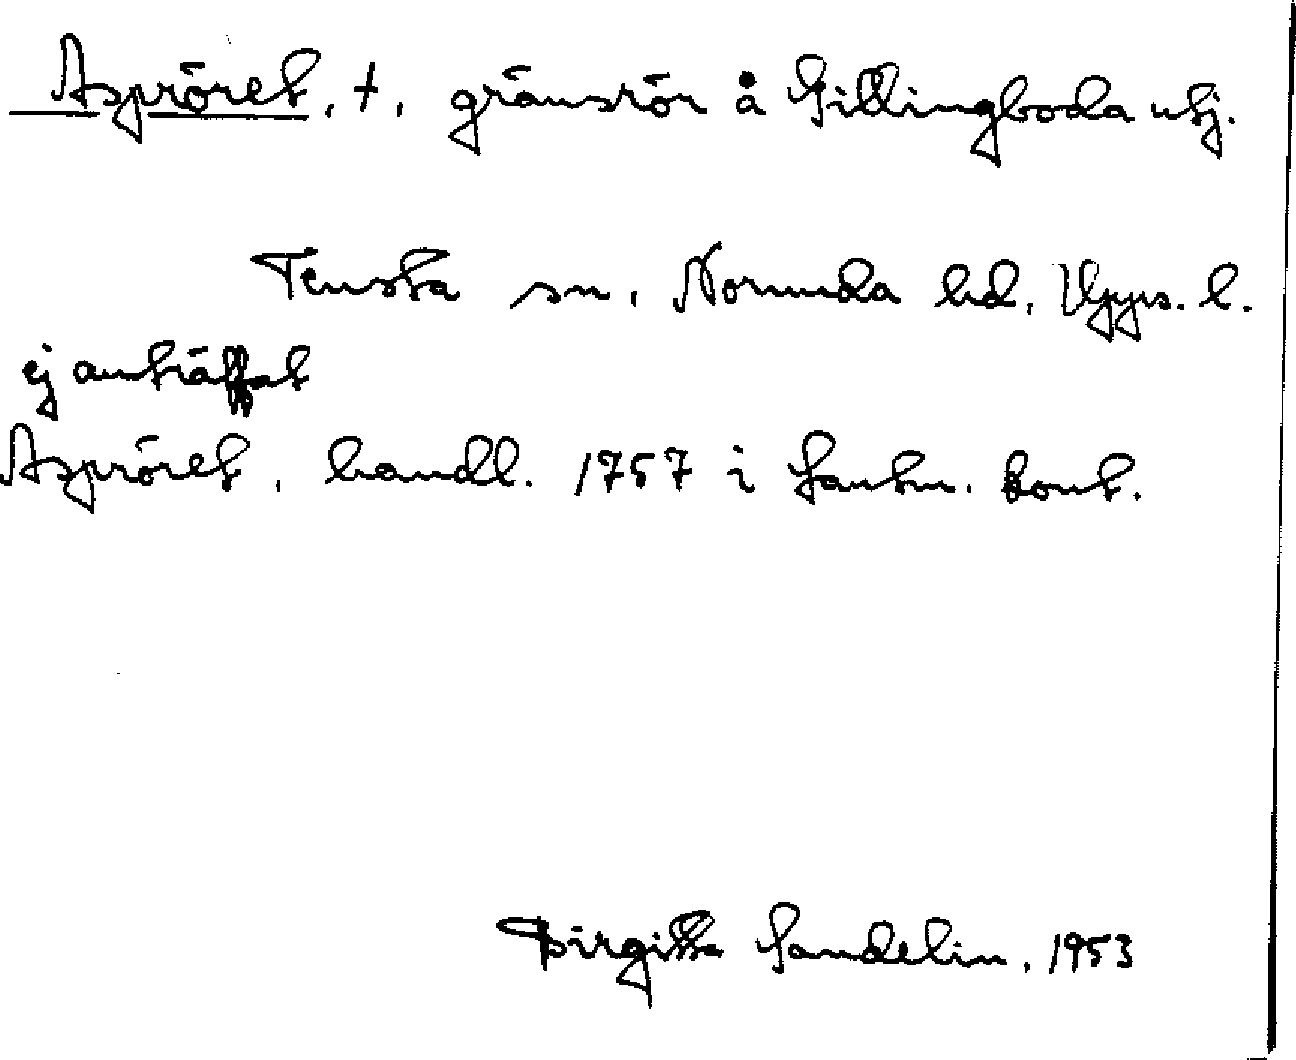 Aspröret, †, gränsrör å Gillingboda utj.
Tensta sn, Norunda hd, Upps. l.
ej anträffat
Aspröret, handl. 1757 i Lantm. kont.
Birgitta Sandelin, 1953